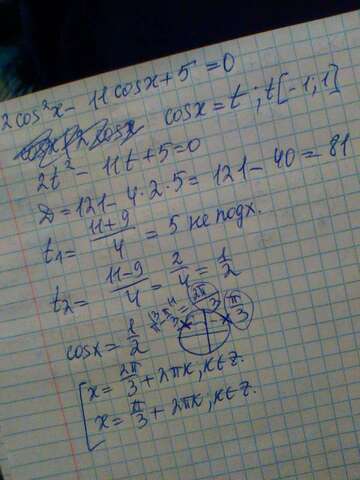 2cos²x - 11cosx + 5 = 0
cosx = t; t[-1; 1]
2t² - 11t + 5 = 0
D = 121 - 4 · 2 · 5 = 121 - 40 = 81
t₁ = (11+9)/4 = 5 не подх.
t₂ = (11-9)/4 = 2/4 = 1/2
cosx = 1/2
2π/3
π/3
x = 2π/3 + 2πk, k∈z.
x = π/3 + 2πk, k∈z.